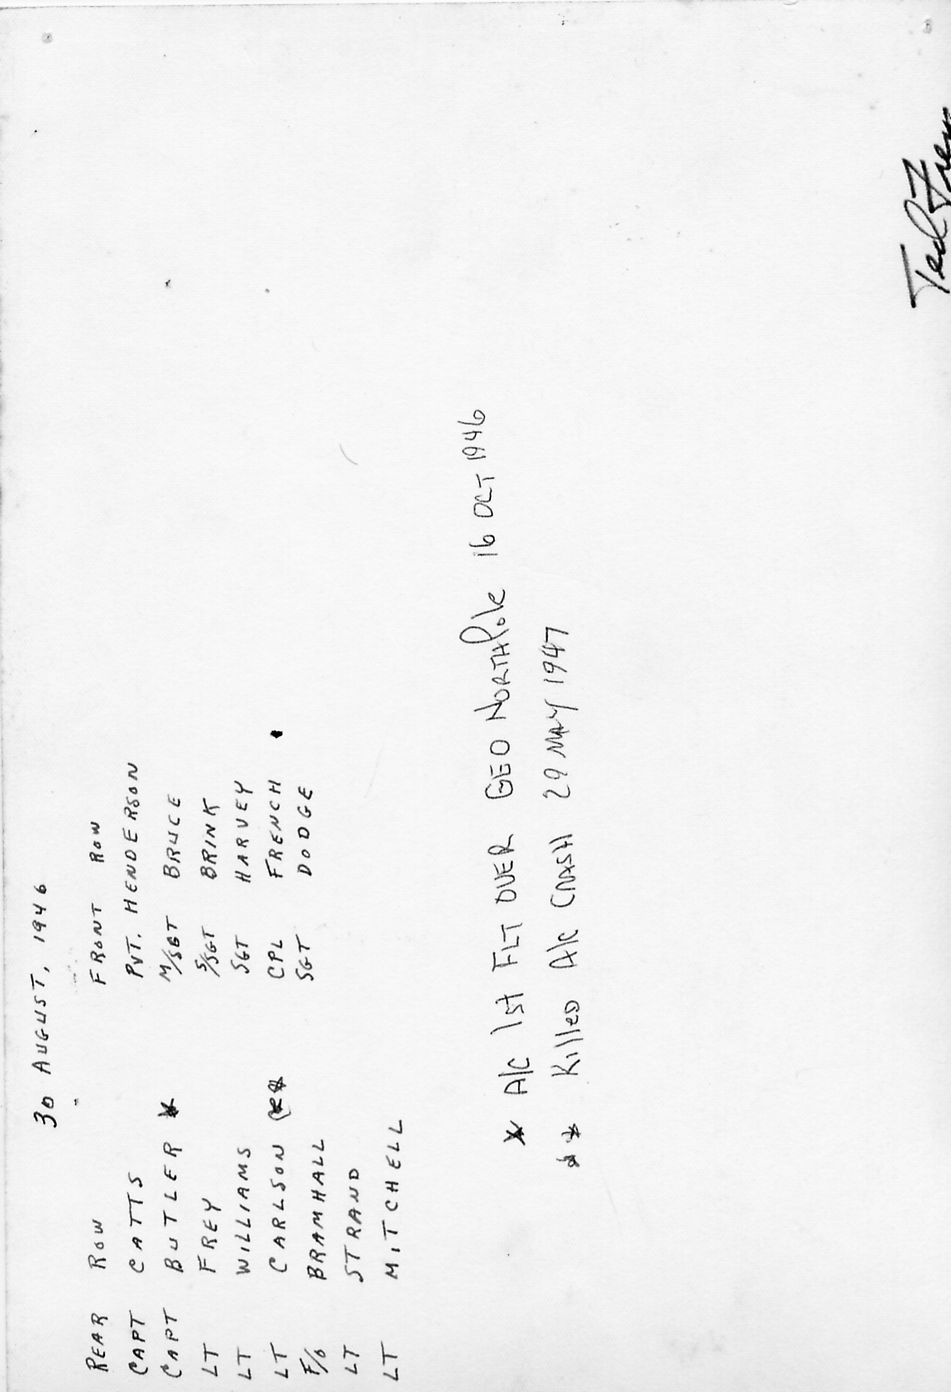 30 AUGUST, 1946
REAR ROW FRONT ROW
CAPT CATTS PVT. HENDERSON
CAPT BUTLER * M/SGT BRUCE
LT FREY S/SGT BRINK
LT WILLIAMS SGT HARVEY
LT CARLSON (** CPL FRENCH
F/O BRAMHALL SGT DODGE
LT STRAND
LT MITCHELL
* A/C 1st FLT OVER GEO NORTH Pole 16 OCT 1946
** Killed A/c CRASH 29 MAY 1947
Ted